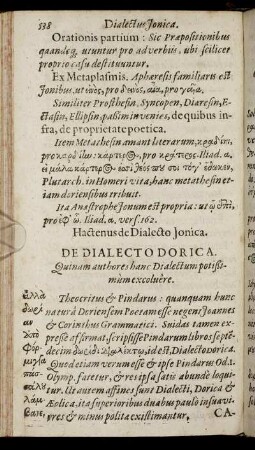 538 Dialectus Jonica.
Orationis partium: Sic Præpositionibus
quandoq, utuntur pro adverbiis, ubi scilicet
proprio casu destituuntur.
Ex Metaplasmis. Aphæresis familiaris est
Jonibus, ut pro pro
Similiter Prosthesin, Syncopen, Diæresin, E-
ctasin, Ellipsin passim invenies, de quibus in-
fra, de proprietate poetica.
Item Metathesin amant literarum,
pro Iliad. α.
Plutarch. in Homeri vita, hanc metathesin et-
iam doriensibus tribuit.
Ita Anastrophe Jonum est propria: ut ᾧ ἔπι,
pro ἐφ' ᾧ. Iliad. α. vers. 162.
Hactenus de Dialecto Jonica.
DE DIALECTO DORICA.
Quinam authores hanc Dialectum potissi-
mùm excoluêre.
Theocritus & Pindarus: quanquam hunc
natura Doriensem Poetam esse negent Joannes
& Corinthus Grammatici. Suidas tamen ex-
presse affirmat, scripsisse Pindarum libros septe-
decim id est, Dialecto Dorica.
Quod etiam verum esse & ipse Pindarus Od. 1.
Olymp. fatetur, & res ipsa satis abundè loqui-
tur. Ut autem affines sunt Dialecti, Dorica &
Æolica, ita superioribus duabus paulò insuavi-
ores & minus politæ existimantur.
CA-